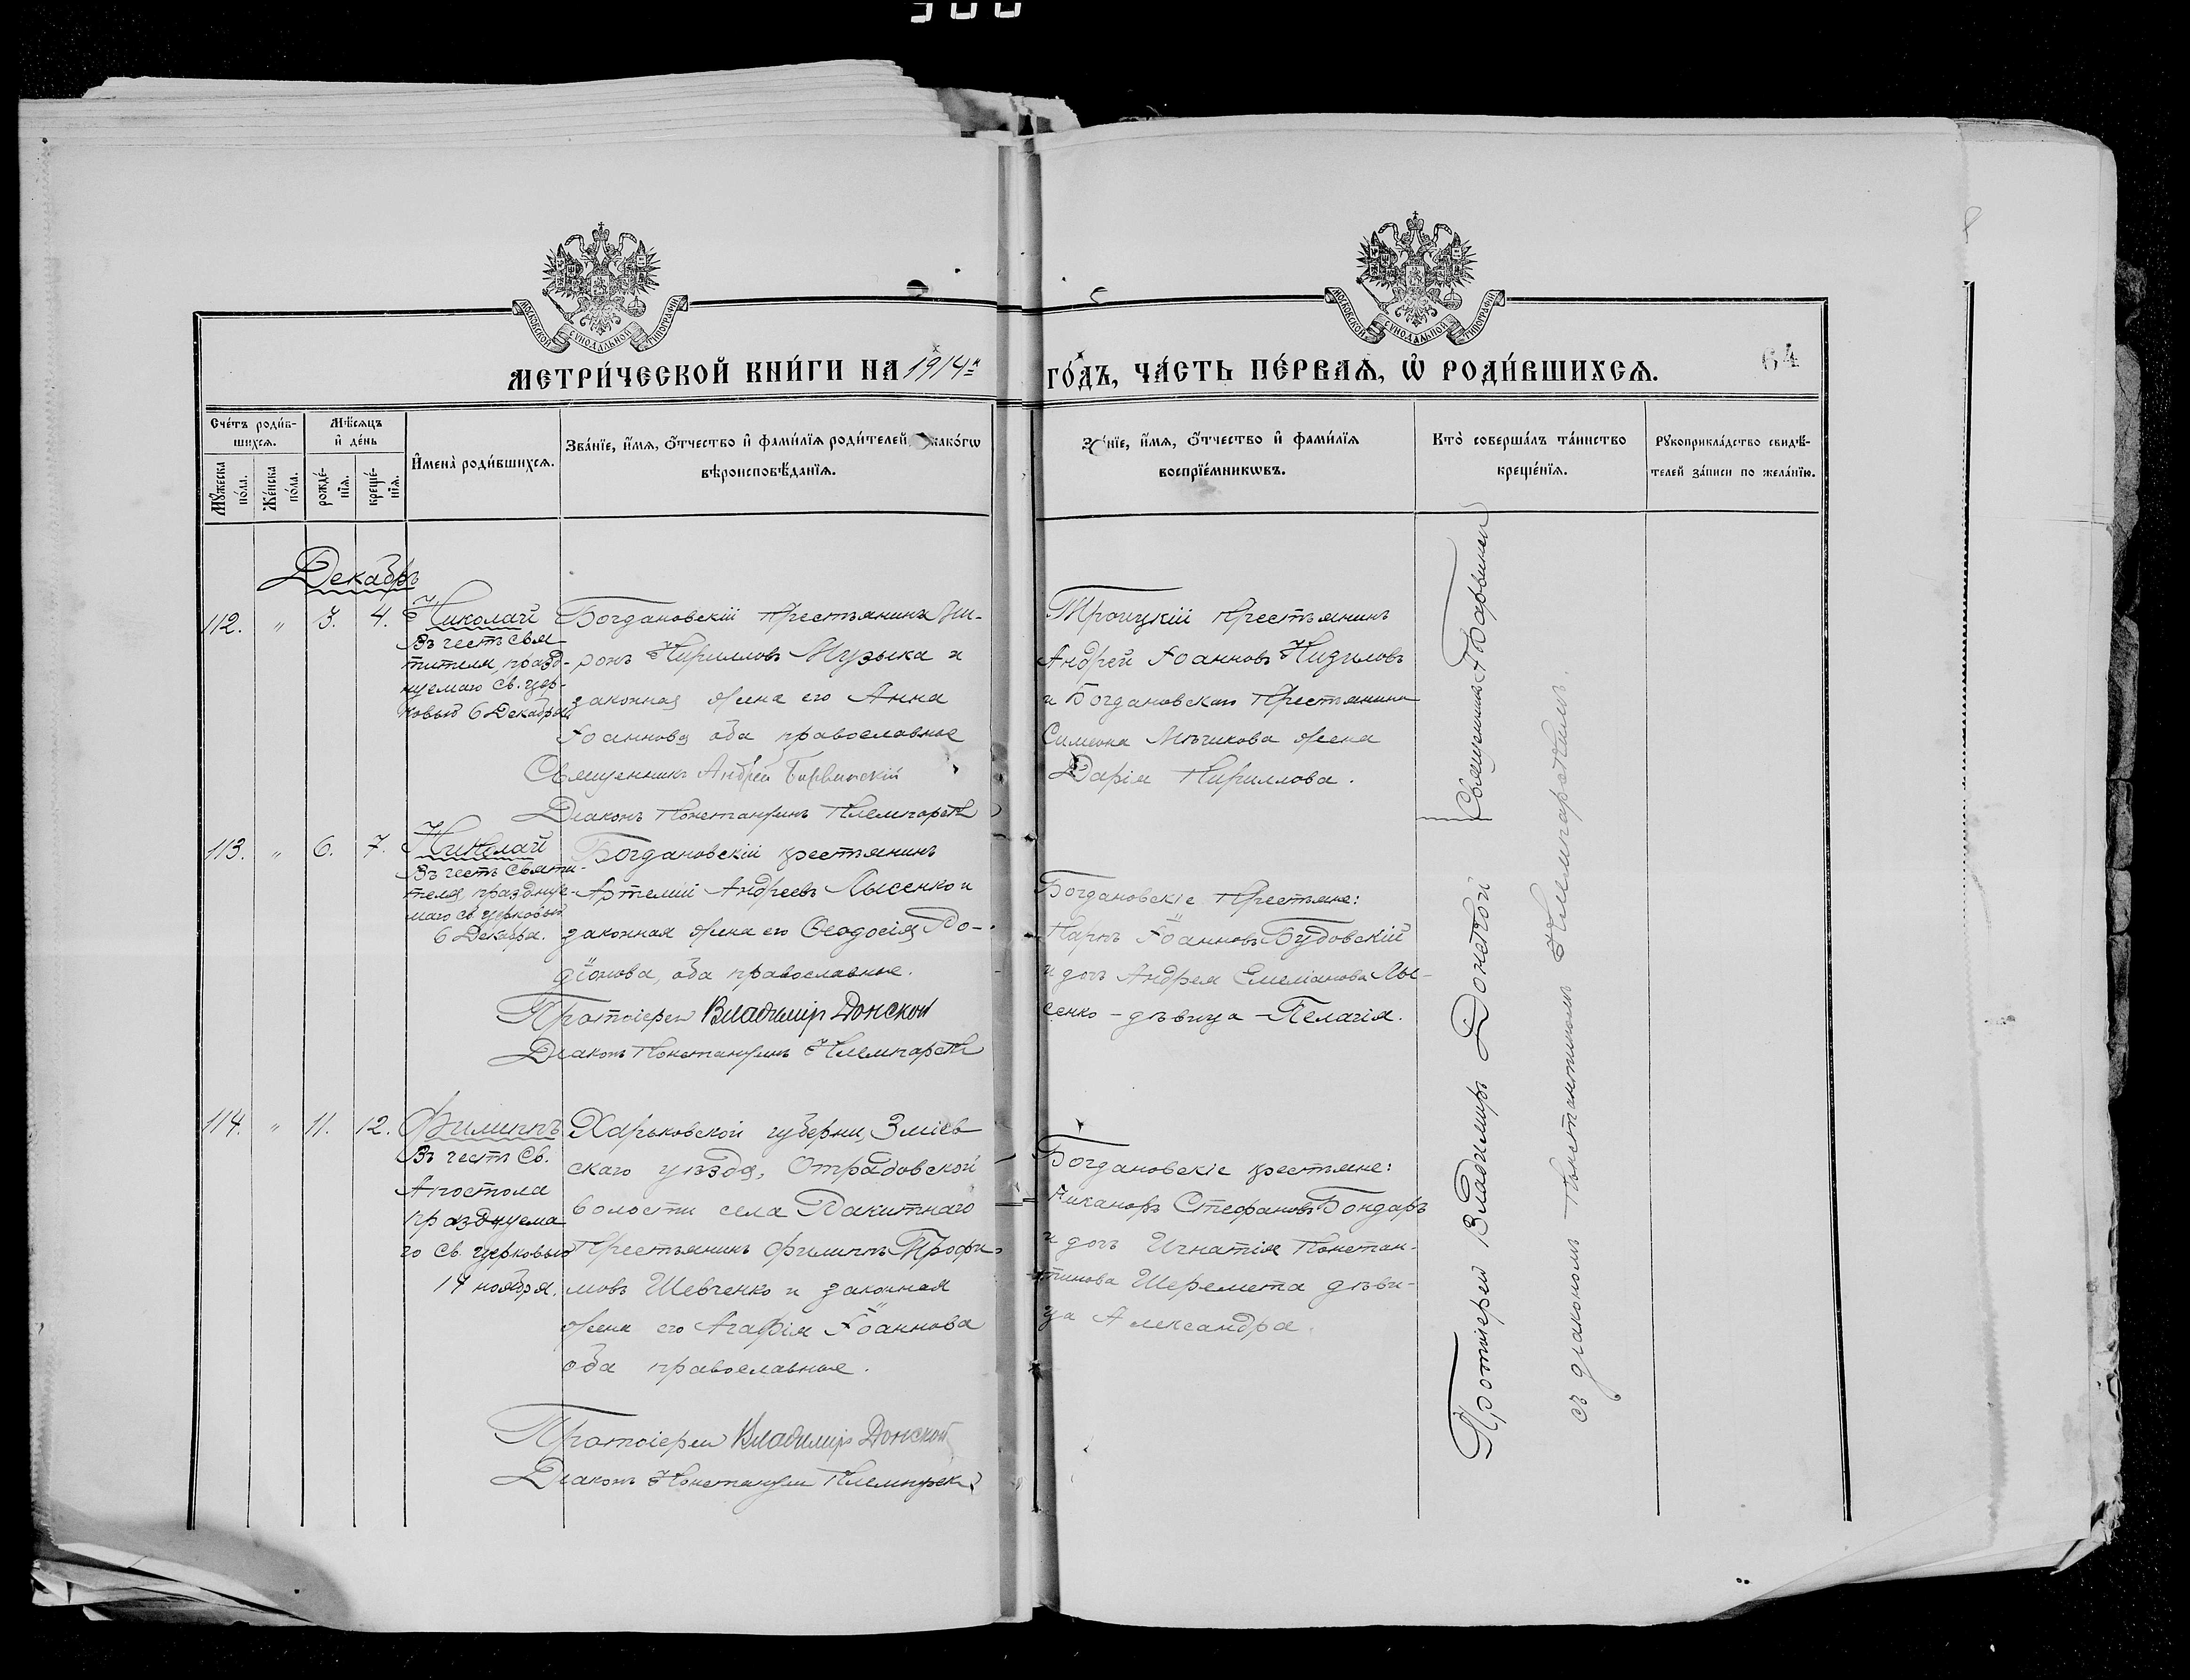 МОСКОВСКОЙ СУНОДАЛЬНОЙ ТИПОГРАФІИ
МОСКОВСКОЙ СУНОДАЛЬНОЙ ТИПОГРАФІИ
МЕТРИ́ЧЕСКОЙ КНИ́ГИ НА 1914й
ГО́ДЪ, ЧА́СТЬ ПЕ́РВАѦ, Ѡ҆ РОДИ́ВШИХСѦ.
64
Сче́тъ роди́в-
шихсѧ.
Мꙋ́жеска
по́ла.
Же́нска
по́ла.
Мѣ́сѧцъ
и҆ де́нь
рожде́-
нїѧ.
креще́-
нїѧ.
И҆мена̀ роди́вшихсѧ.
Зва́нїе, и҆́мѧ, ѻ҆́тчество и҆ фами́лїѧ роди́телей, и҆ како́гѡ
вѣроисповѣ́данїѧ.
нїе, и҆́мѧ, ѻ҆́тчество и҆ фами́лїѧ
воспрїе́мникѡвъ.
Кто̀ соверша́лъ та́инство
креще́нїѧ.
Рꙋкоприкла́дство свидѣ́-
телей за́писи по жела́нїю.
Декабрь
112. " 3. 4.
Николай
Въ честь Свя
тителя, празд-
нуемаго Св. Цер-
ковью 6 Декабря
Богдановскій крестьянинъ Ми-
ронъ Кирилловъ Музыка и
законная жена его Анна
Іоаннова оба православные
Священникъ Андрей Барвинскій
Діаконъ Константинъ
Троицкій крестьянинъ
Андрей Іоанновъ Кизиловъ
и Богдановскаго крестьянина
Симеона Мѣчикова жена
Дарія Кириллова.
113. " 6. 7.
Николай
Въ честь Святи-
теля празднуе-
маго Св. Церковью
6 Декабря.
Богдановскій крестьянинъ
Артемій Андреевъ Лысенко и
законная жена его Ѳеодосія Ро-
діонова, оба православные.
Протоіерей Владимиръ Донской
Діаконъ Константинъ
Богдановскіе крестьяне:
Карпъ Іоанновъ Будовскій
и дочь Андрея Емеліанова Лы-
сенко - дѣвица - Пелагія.
114. " 11. 12.
Филиппъ
Въ честь Св.
Апостола
празднуема
го Св. Церковью
14 ноября.
Харьковской губерніи, Зміев
скаго уѣзда, Отрадовской
волости села Ракитнаго
крестьянинъ Филиппъ Трофи-
мовъ Шевченко и законная
жена его Агафія Іоаннова
оба православные.
Протоіерей Владимиръ Донской
Діаконъ Константинъ
Богдановскіе крестьяне:
Никаноръ Стефановъ Бондарь
и дочь Игнатія Констан-
тинова Шеремета дѣви-
ца Александра.
Священникъ А Барвинскій
Протоіерей Владимиръ Донской
съ діакономъ Константиномъ